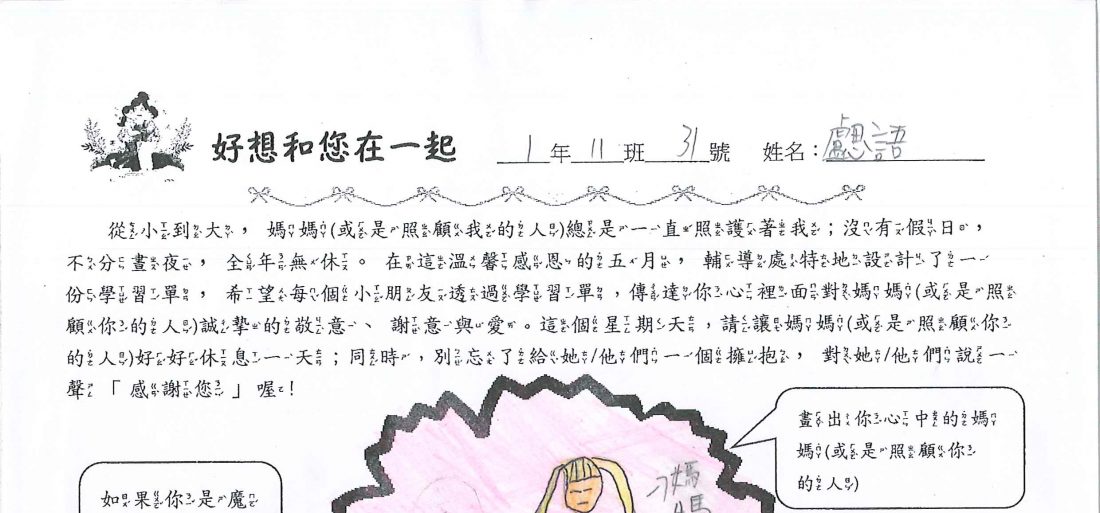 好想和您在一起 1年11班31號 姓名:
從小到大,媽媽(或是照顧我的人)總是一直照護著我;沒有假日,
不分晝夜,全年無休。在這溫馨感恩的五月,輔導處特地設計了一
份學習單,希望每個小朋友透過學習單,傳達你心裡面對媽媽(或是照
顧你的人)誠摯的敬意、謝意與愛。這個星期天,請讓媽媽(或是照顧你
的人)好好休息一天;同時,別忘了給她/他們一個擁抱,對她/他們說一
聲「感謝您」喔!
畫出你心中的媽
媽(或是照顧你
的人)
如果你是魔
媽
媽